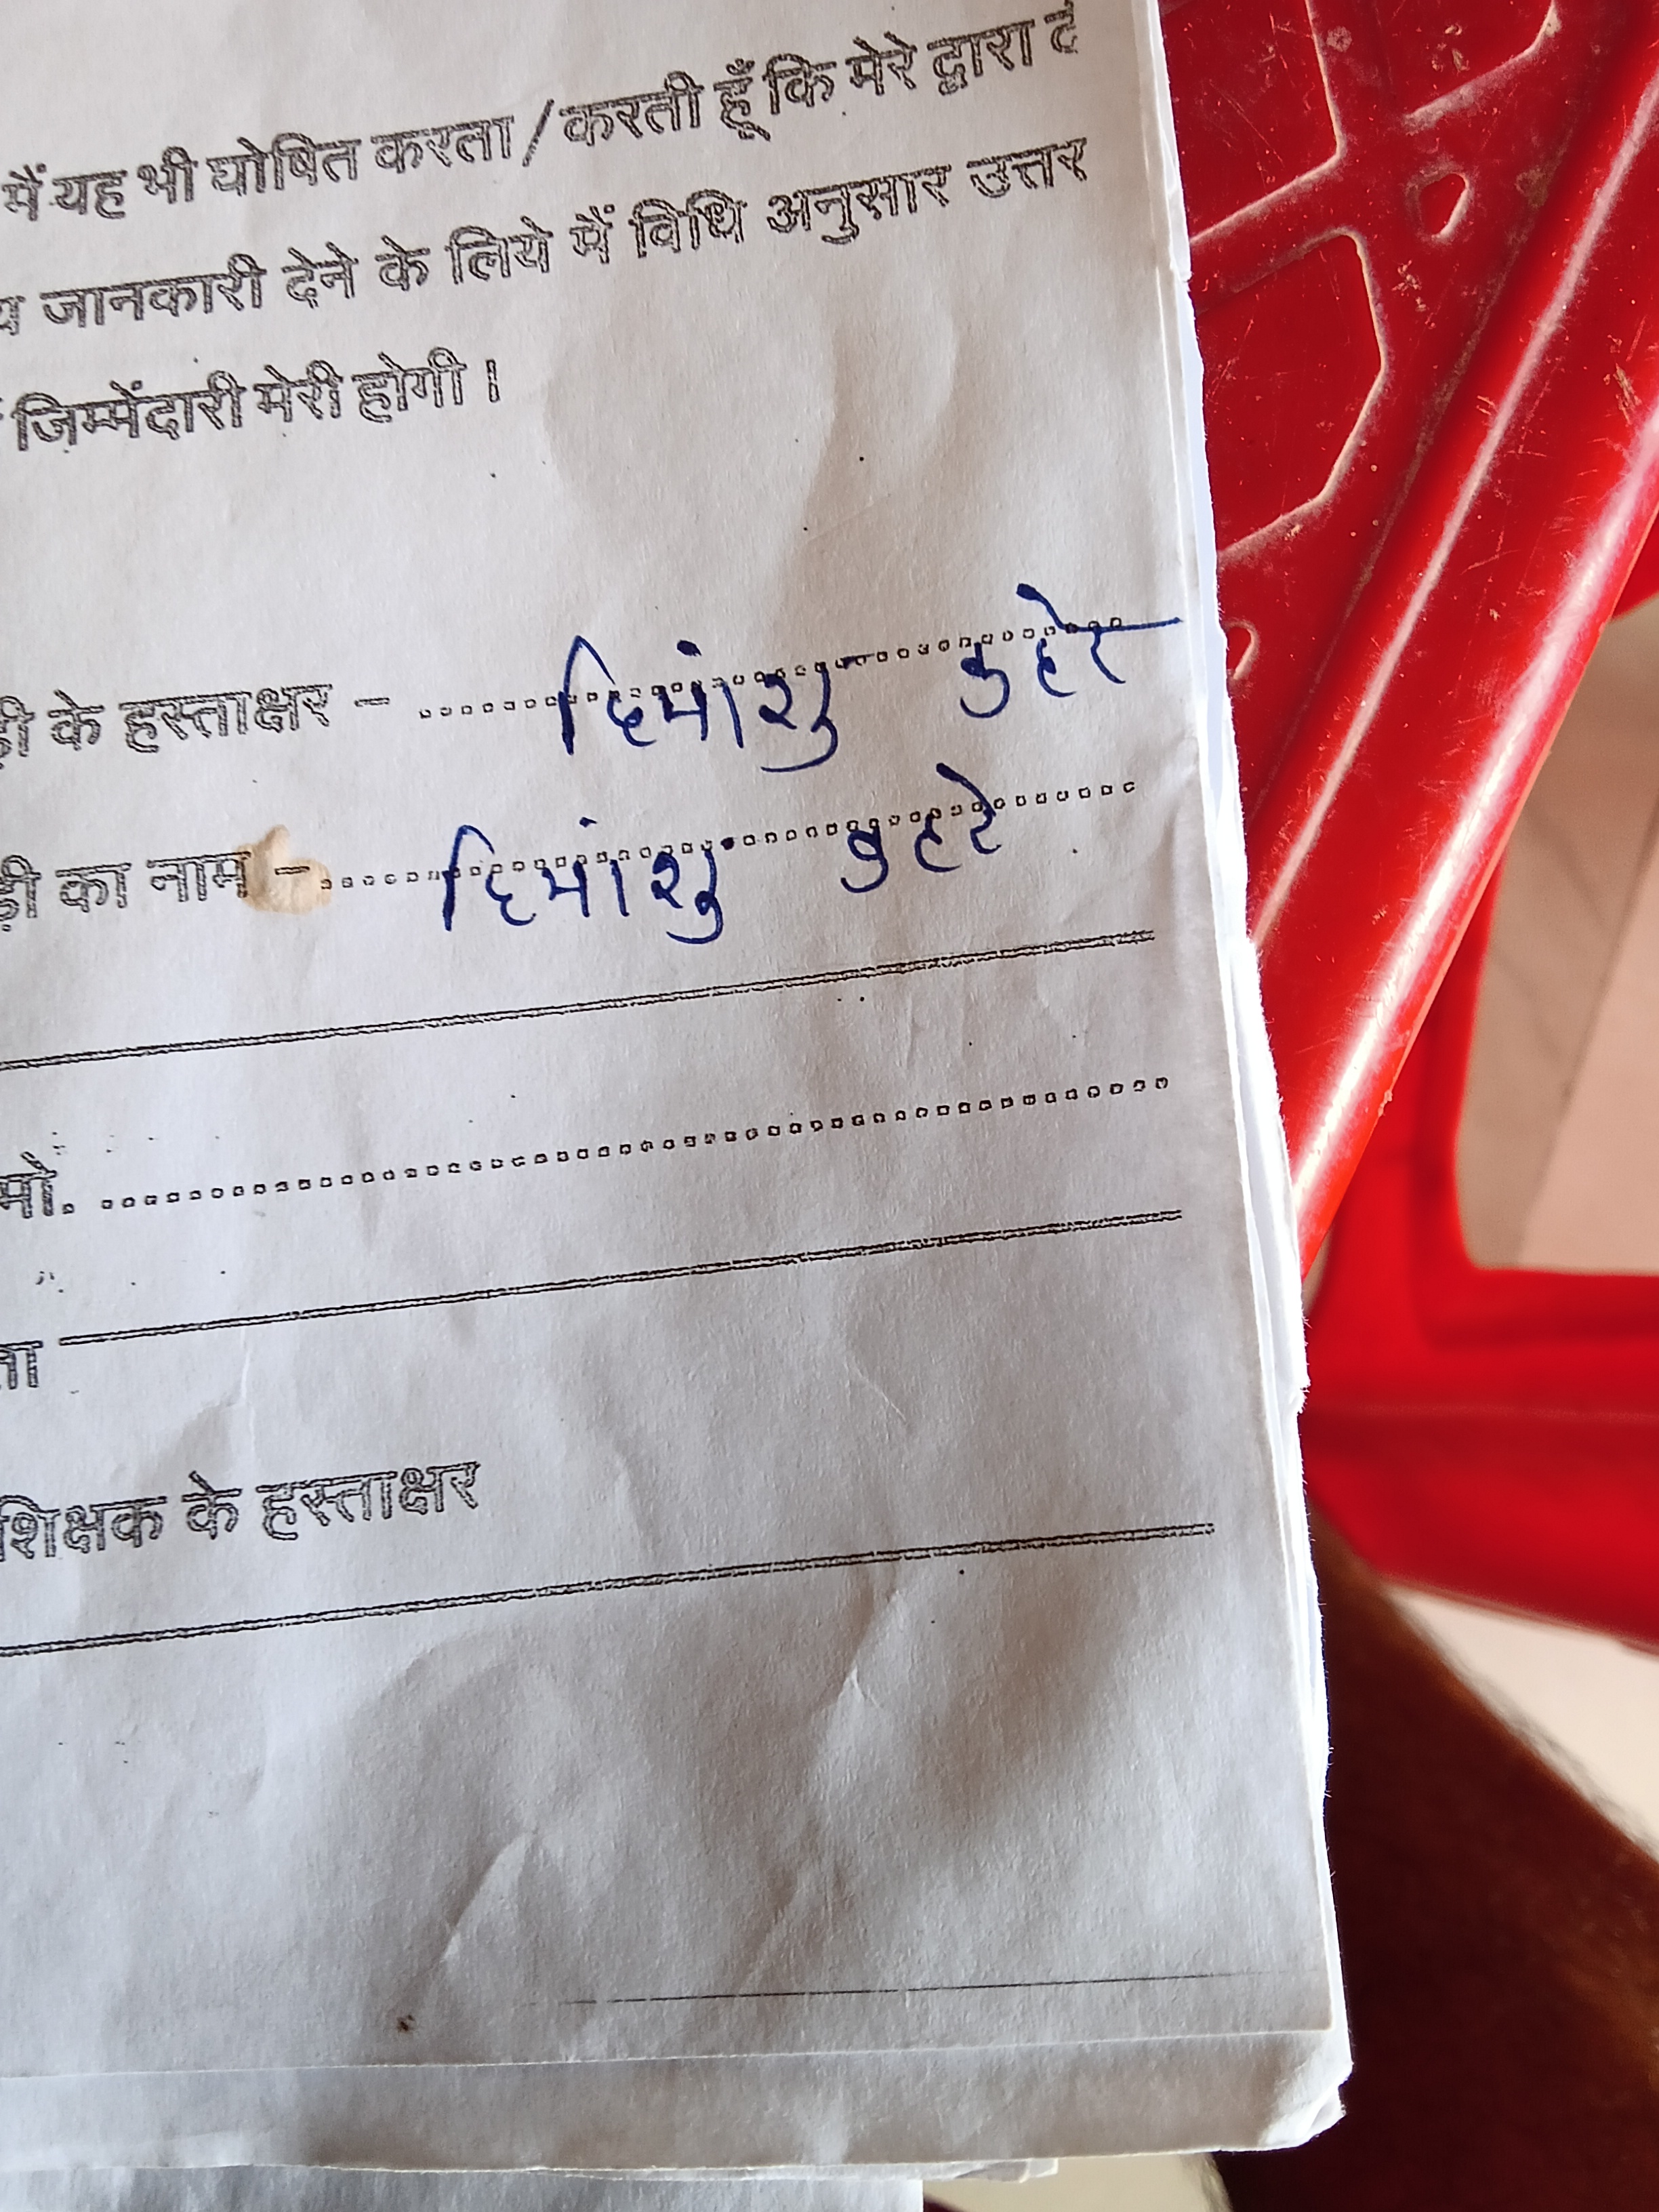 मैं यह भी घोषित करता/करती हूँ कि मेरे द्वारा
जानकारी देने के लिये मैं विधि अनुसार उत्तर
जिम्मेंदारी मेरी होगी ।
के हस्ताक्षर - .......... हिमांशु
का नाम - .......... हिमांशु
मो. ..........
शिक्षक के हस्ताक्षर